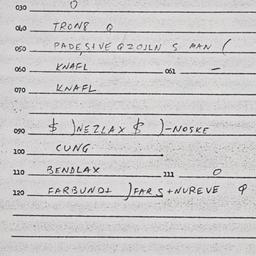 030 0
040 TRON8 Q
050 PADE,SIVE QZOJLN S MAN (
060 KNAFL 061 –
070 KNAFL
090 $ )NEZLAX $ )-NOSKE
100 CUNG
110 BENDLAX 111 0
120 FARBUND+ )FAR S+NUREVE φ